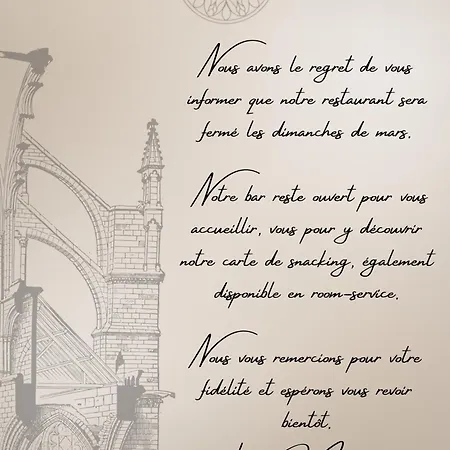 Nous avons le regret de vous
informer que notre restaurant sera
fermé les dimanches de mars.
Notre bar reste ouvert pour vous
accueillir, vous pour y découvrir
notre carte de snacking, également
disponible en room-service.
Nous vous remercions pour votre
fidélité et espérons vous revoir
bientôt.